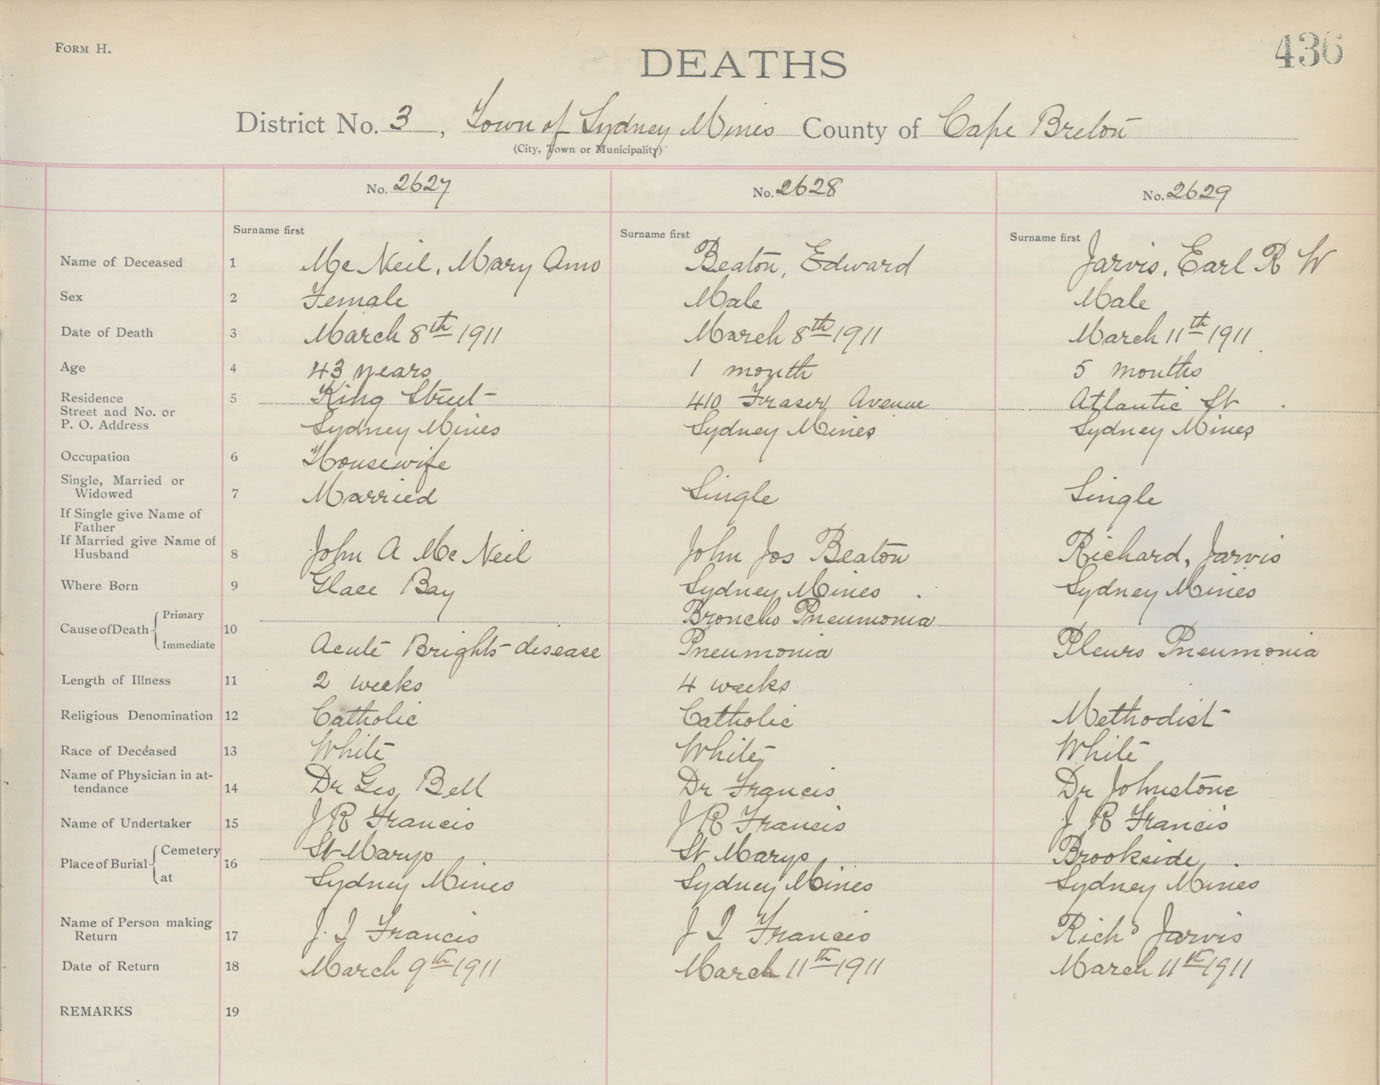 FORM H.
436
DEATHS
District No. 3, Town of Sydney Mines County of Cape Breton
(City, Town or Municipality)
No. 2627 No. 2628 No. 2629
Surname first Surname first Surname first
Name of Deceased 1 McNeil, Mary Ann Beaton, Edward Jarvis, Earl R W
Sex 2 Female Male Male
Date of Death 3 March 8th 1911 March 8th 1911 March 11th 1911
Age 4 43 years 1 month 5 months
Residence 5 King Street 410 Fraser Avenue Atlantic St
Street and No. or
P. O. Address Sydney Mines Sydney Mines Sydney Mines
Occupation 6 Housewife
Single, Married or
Widowed 7 Married Single Single
If Single give Name of
Father
If Married give Name of
Husband 8 John A McNeil John Jos Beaton Richard, Jarvis
Where Born 9 Glace Bay Sydney Mines Sydney Mines
Cause of Death 10 Primary Broncho Pneumonia
Immediate Acute Brights disease Pneumonia Pleuro Pneumonia
Length of Illness 11 2 weeks 4 weeks
Religious Denomination 12 Catholic Catholic Methodist
Race of Deceased 13 White White White
Name of Physician in at-
tendance 14 Dr Geo, Bell Dr Francis Dr Johnstone
Name of Undertaker 15 J R Francis J R Francis J R Francis
Place of Burial 16 Cemetery St Marys St Marys Brookside
at Sydney Mines Sydney Mines Sydney Mines
Name of Person making
Return 17 J. I Francis J I Francis Richd Jarvis
Date of Return 18 March 9th 1911 March 11th 1911 March 11th 1911
REMARKS 19